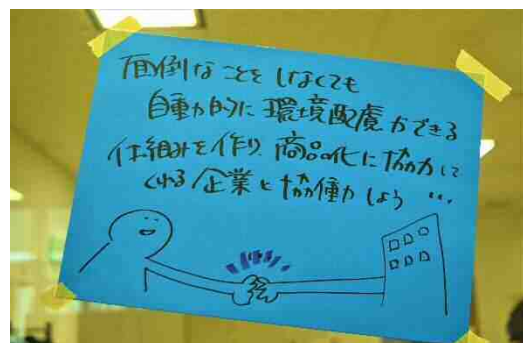 面倒なことをしなくても
自動的に環境配慮ができる
仕組みを作り、商品化に協力して
くれる企業と協働しよう…